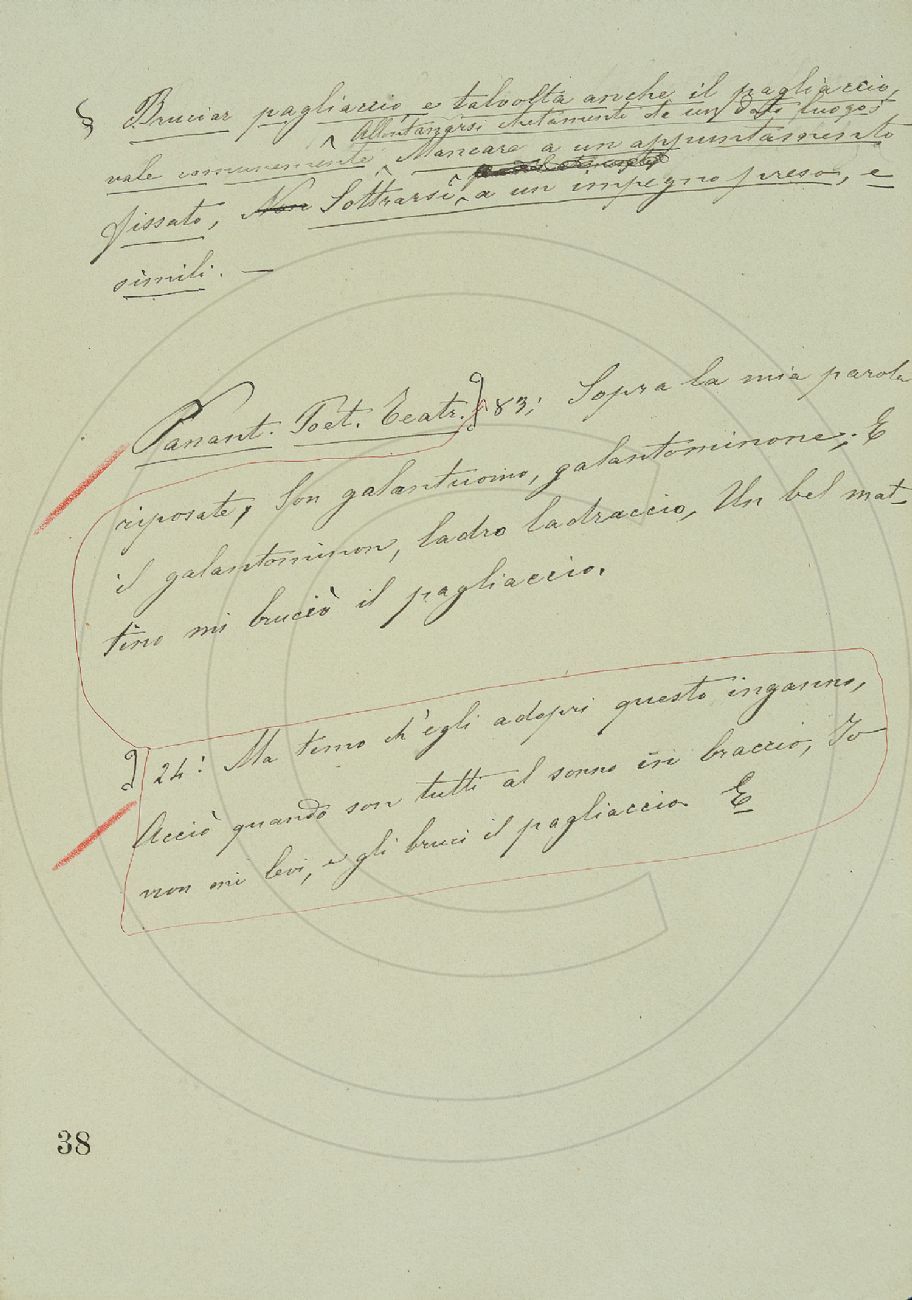 § Bruciar pagliaccio e talvolta anche il pagliaccio,
Allontanarsi chetamente da un dato luogo;
vale comunemente Mancare a un appuntamento
fissato, Non Sottrarsi a un impegno preso, e
simili. —
Panant. Poet. Teatr. 2, 83: Sopra la mia parola
riposate, Son galantuomo, galantominone; E
il galantominon, ladro ladraccio, Un bel mat-
tino mi bruciò il pagliaccio.
2, 24: Ma temo ch'egli adopri questo inganno,
Acciò quando son tutti al sonno in braccio, Io
non mi levi, e gli bruci il pagliaccio. E
38